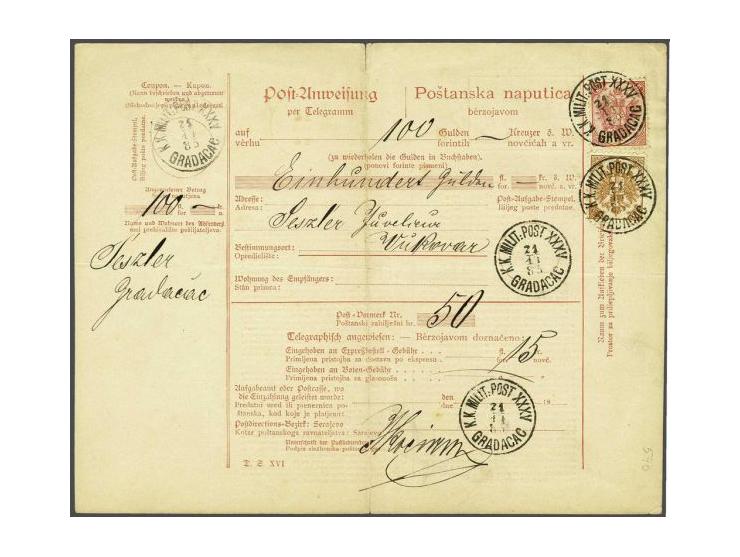 Coupon. — Kupon.
Post-Anweisung
per Telegramm
Poštanska naputnica
bėrzojavom
auf
vèrhu
100
Gulden
forintih
Kreuzer ö. W.
novčićah a vr.
(zu wiederholen die Gulden in Buchstaben)
(ponovi forinte pismeni)
Einhundert Gulden
fl.
for.
kr. ö. W.
novč. a vr.
Adresse:
Adresa:
Seszler Juvelirer
Vukovar
Post-Aufgabe-Stempel.
Biljeg pošte predatne.
Bestimmungsort:
Opredielište:
Wohnung des Empfängers:
Stan primca:
100
Name und Wohnort des Absenders
Seszler
Gradačac
Post-Vormerk Nr.
Poštanski zabilježni br.
50
Telegraphisch angewiesen: — Bėrzojavom doznačeno:
Eingehoben an Expreßbestell-Gebühr
Primljena pristojba za dostavu po ekspresu
fl.
for.
15
kr.
novč.
Eingehoben an Boten-Gebühr
Primljena pristojba za glasnoša
Aufgabeamt oder Postcasse, wo
die Einzahlung geleistet wurde:
den
dne
18
Postdirections-Bezirk: Sarajevo
Kotar poštanskog ravnateljstva: Sarajevo
D. S. XVI
K.K. MILIT. POST XXXV
21
11
85
GRADACAC
K.K. MILIT. POST XXXV
21
GRADACAC
K.K. MILIT. POST XXXV
21
GRADACAC
K.K. MILIT. POST XXXV
21
11
85
GRADACAC
K.K. MILIT. POST XXXV
21
11
GRADACAC